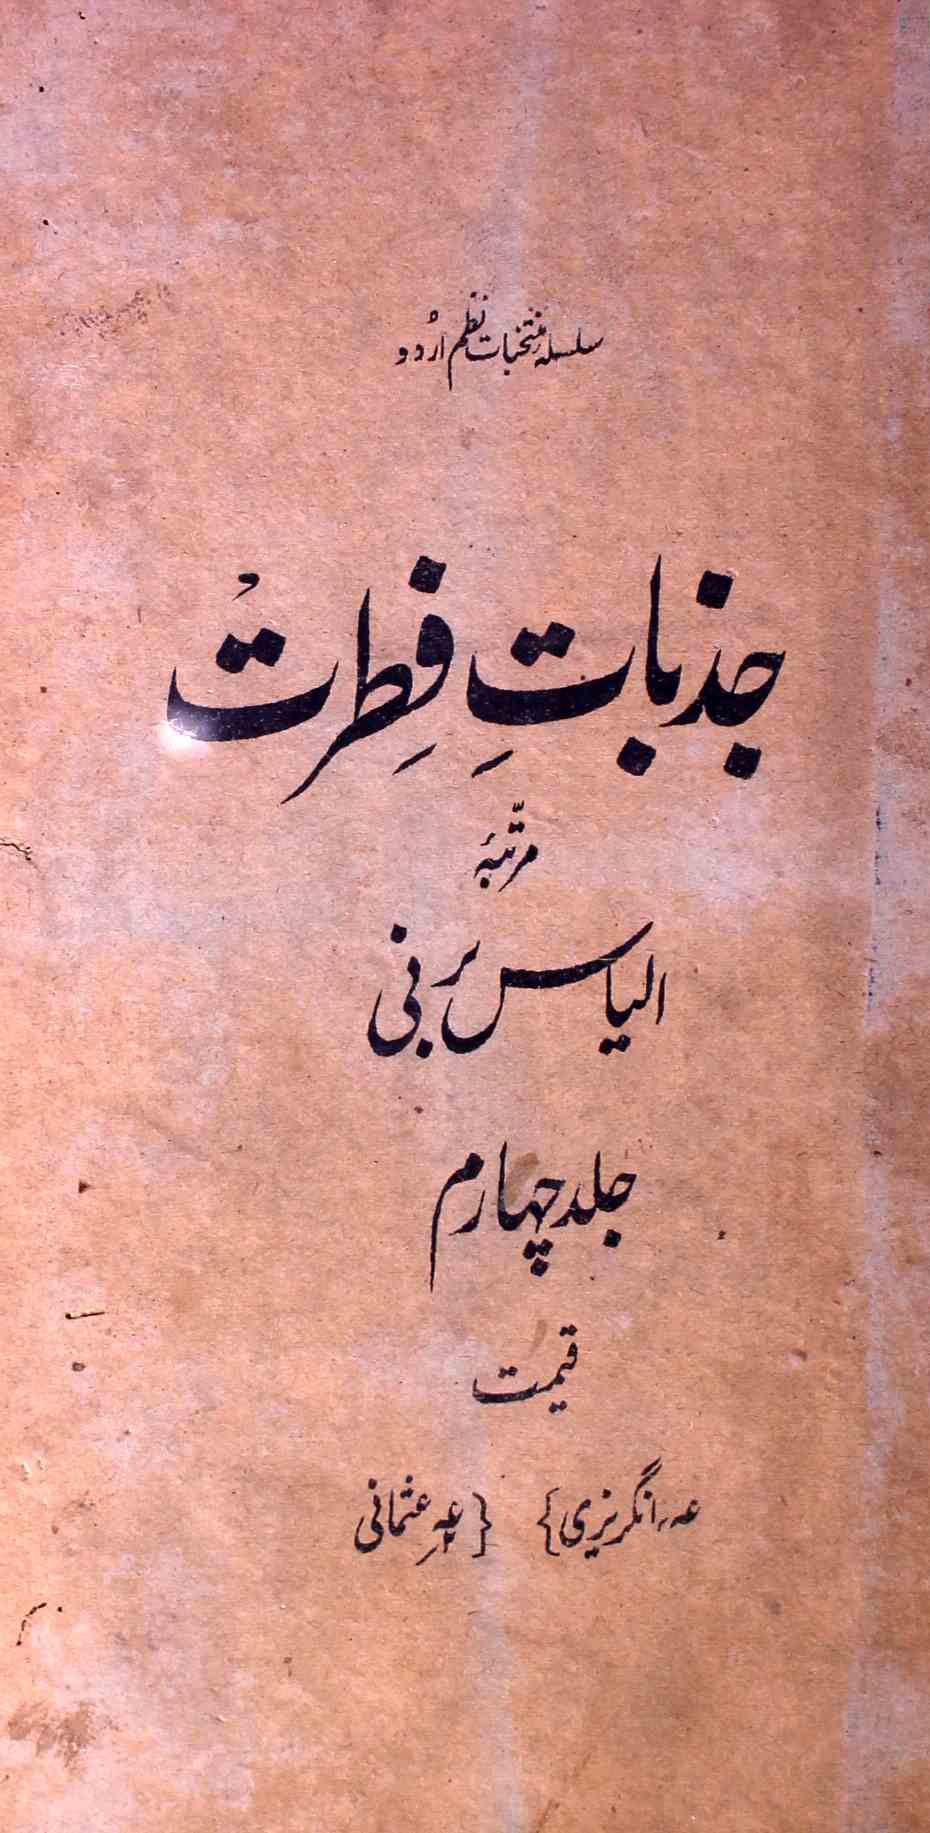 سلسلہ منتخبات نظم اردو
جذباتِ فِطرت
مرتّبۂ
الیاس برنی
جلد چہارم
قیمت
عہ انگریزی } { عثمانی